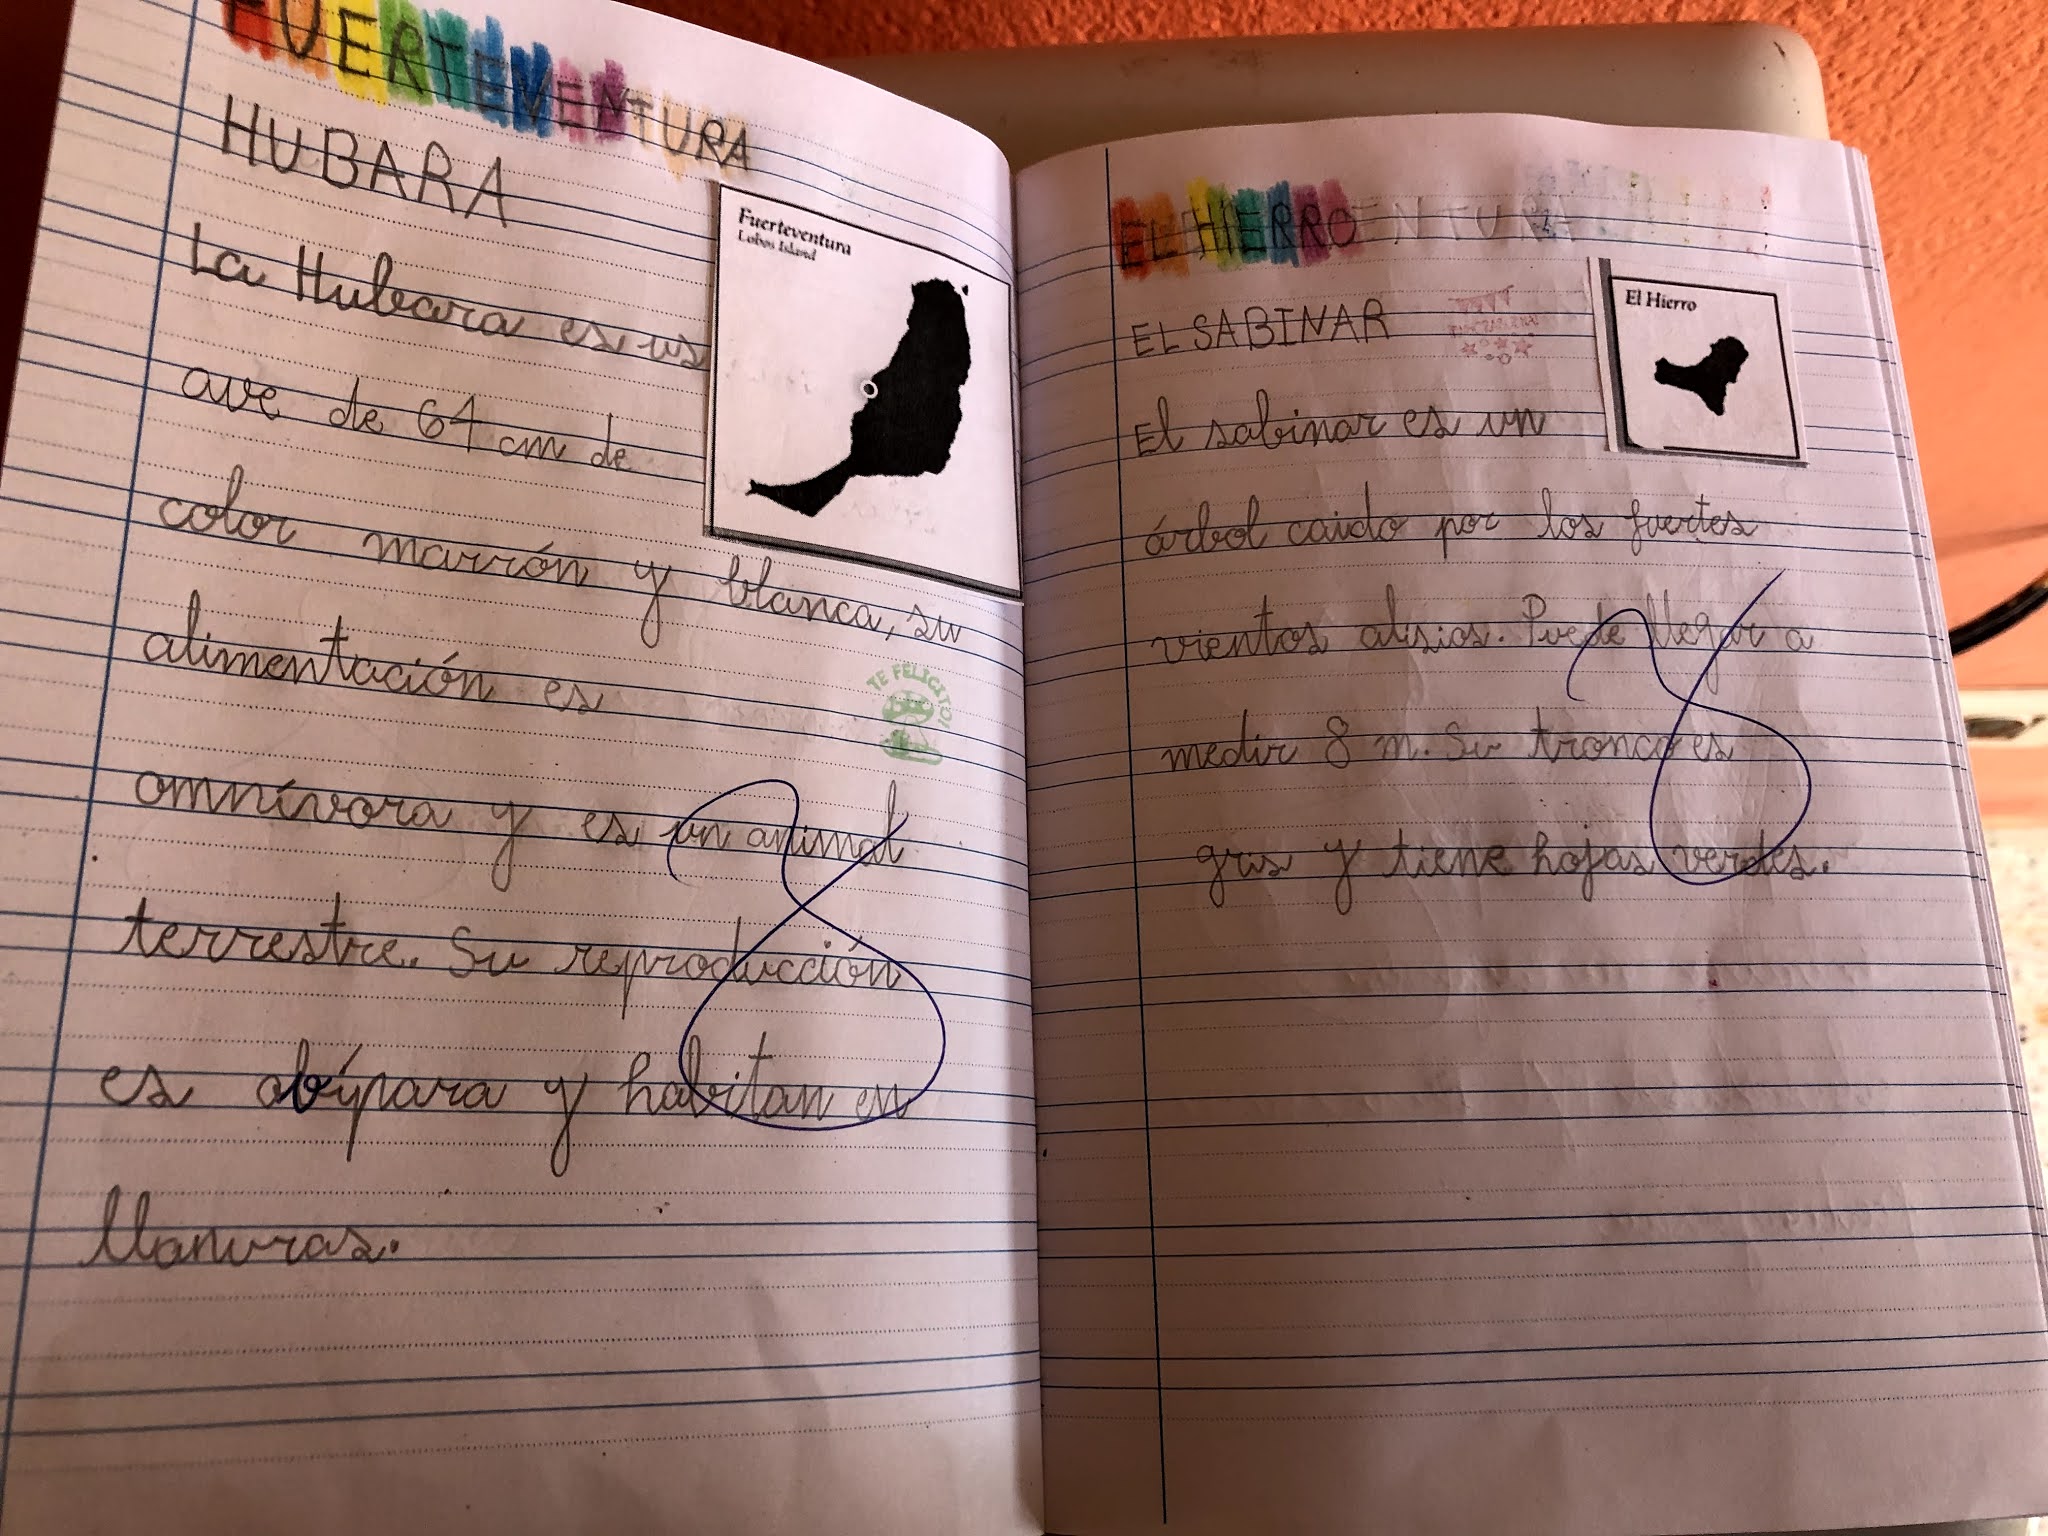 FUERTEVENTURA
HUBARA
Fuerteventura
Lobos Island
La Hubara es us
ave de 64 cm de
color marrón y blanca, su
alimentación es
TE FELICITO!
omnívora y es un animal
terrestre. Su reproducción
es obípara y habitan en
llanuras.
8
EL HIERRO
EL SABINAR
El Hierro
El sabinar es un
árbol caido por los fuertes
vientos alisios. Puede llegar a
medir 8 m. Su tronco es
gris y tiene hojas verdes.
8